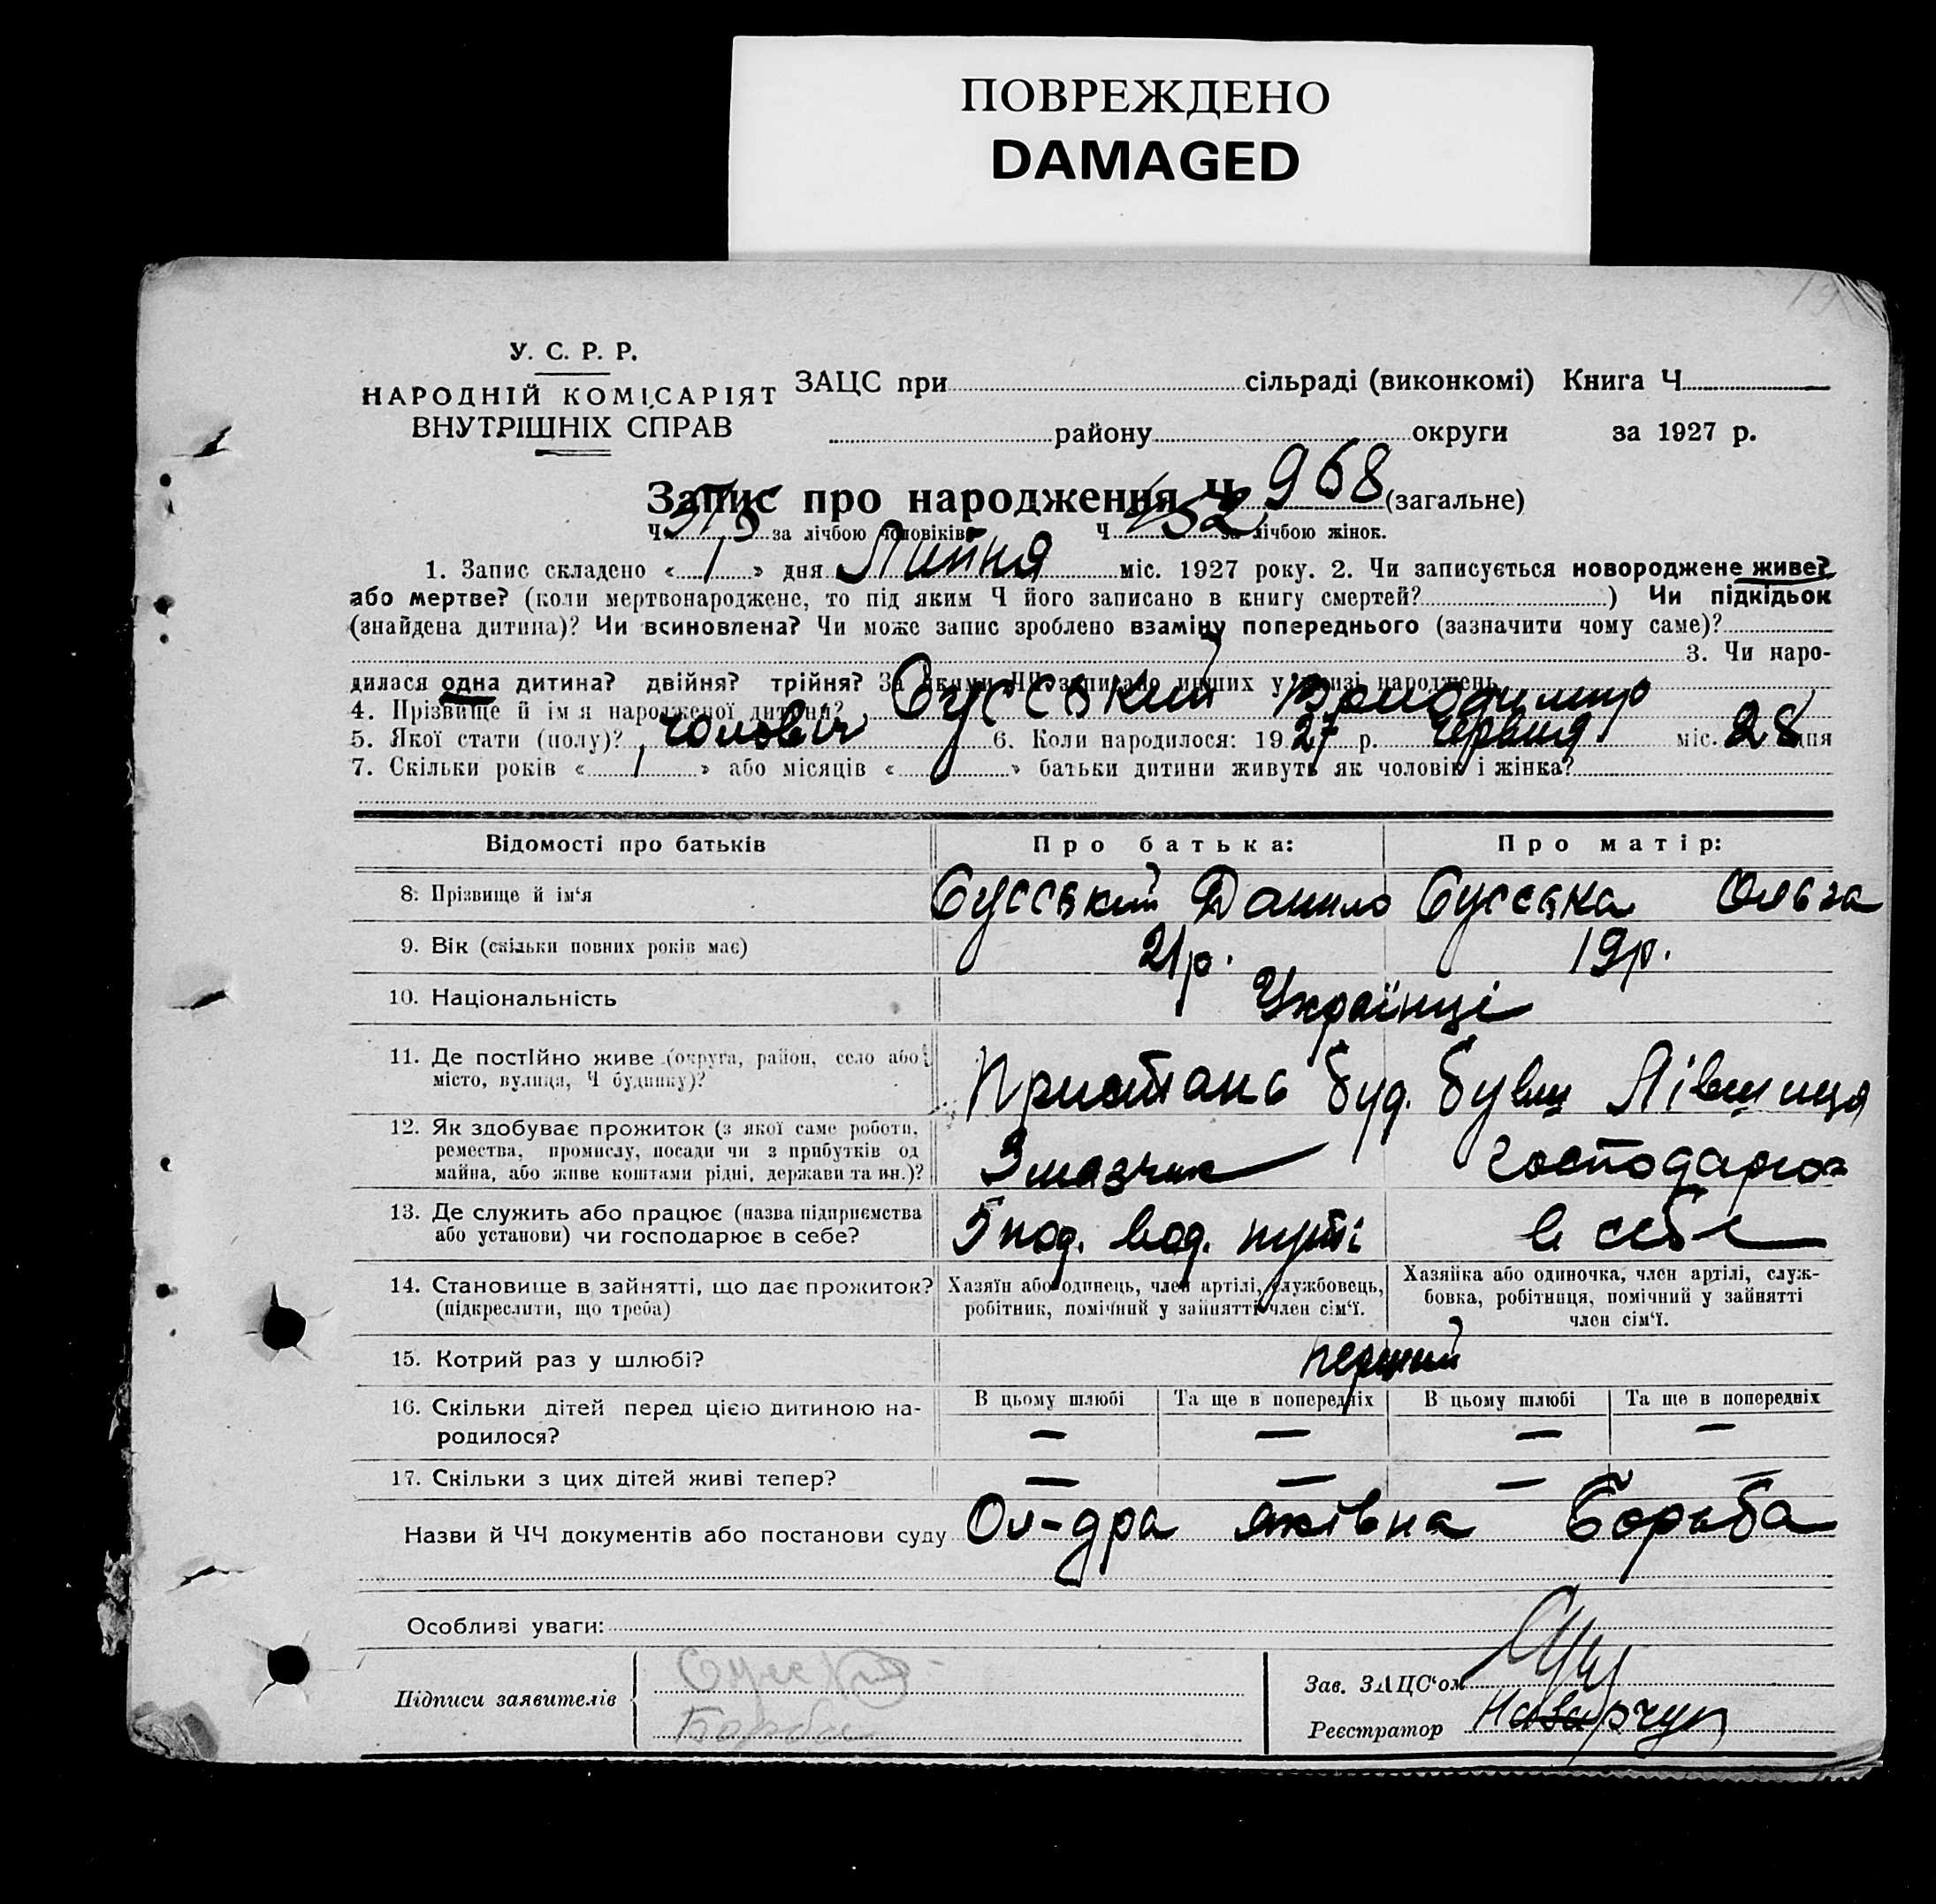 ПОВРЕЖДЕНО
DAMAGED
У. С. Р. Р.
НАРОДНІЙ КОМІСАРІЯТ
ВНУТРІШНІХ СПРАВ
ЗАЦС при сільраді (виконкомі) Книга Ч
району округи за 1927 р.
Запис про народження Ч 968 (загальне)
Ч за лічбою чоловіків Ч 452 за лічбою жінок.
1. Запис складено « 1 » дня Липня міс. 1927 року. 2. Чи записується новороджене живе?
або мертве? (коли мертвонароджене, то під яким Ч його записано в книгу смертей? ) Чи підкідьок
(знайдена дитина)? Чи всиновлена? Чи може запис зроблено взаміну попереднього (зазначити чому саме)?
3. Чи наро-
дилася одна дитина? двійня? трійня? За якими ЧЧ записано инших у книзі народжень
4. Прізвище й ім'я народженої дитини? Сусський Володимир
5. Якої стати (полу)? чоловіч 6. Коли народилося: 1927 р. Червня міс. 28 дня
7. Скільки років « 1 » або місяців « » батьки дитини живуть як чоловік і жінка?
Відомості про батьків Про батька: Про матір:
8. Прізвище й ім'я Сусський Данило Сусська Ольга
9. Вік (скільки повних років має) 21р. 19р.
10. Національність Українці
11. Де постійно живе (округа, район, село або
місто, вулиця, Ч будинку)? Пристань буд. бувш Лівшиця
12. Як здобуває прожиток (з якої саме роботи,
ремества, промислу, посади чи з прибутків од
майна, або живе коштами рідні, держави та ин.)? Змазчик господарює
13. Де служить або працює (назва підприємства
або установи) чи господарює в себе? под. вод. путі в себе
14. Становище в зайнятті, що дає прожиток?
(підкреслити, що треба)
Хазяїн або одинець, член артілі, службовець,
робітник, помічний у зайнятті член сім'ї.
Хазяйка або одиночка, член артілі, служ-
бовка, робітниця, помічний у зайнятті
член сім'ї.
15. Котрий раз у шлюбі? перший
16. Скільки дітей перед цією дитиною на-
родилося?
В цьому шлюбі Та ще в попередніх В цьому шлюбі Та ще в попередніх
— — — —
17. Скільки з цих дітей живі тепер? — — — —
Назви й ЧЧ документів або постанови суду Ол-дра Яківна Борьба
Особливі уваги:
Підписи заявителів
Борба
Зав. ЗАЦС'ом
Реєстратор